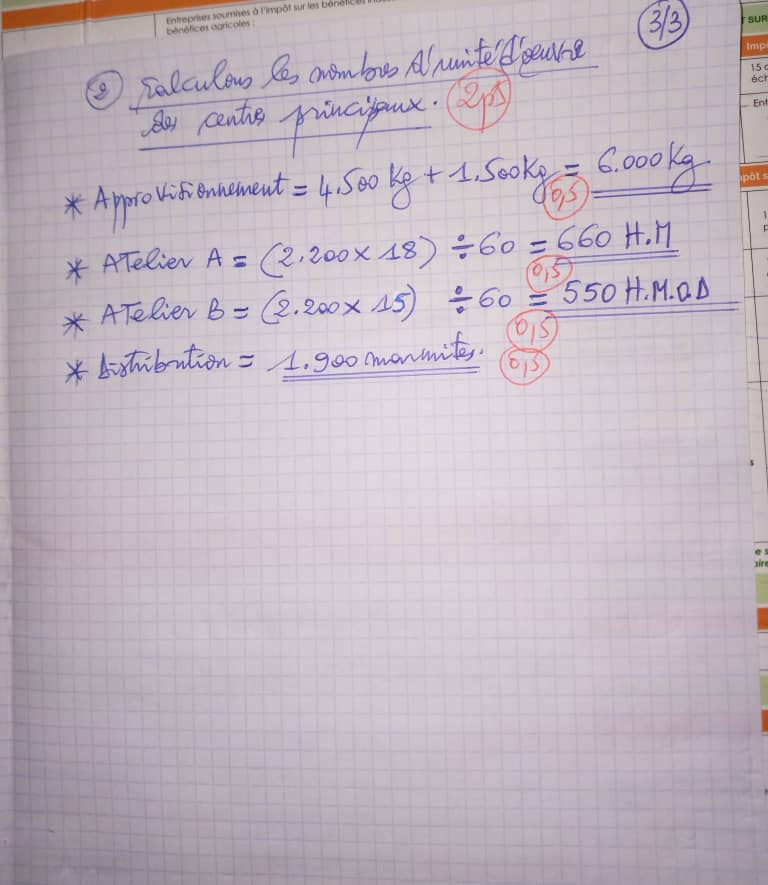 Entreprises soumises à l'impôt sur les bénéfices
bénéfices agricoles :
SUR
Imp
15
éch
Ent
3/3
② Calculons les nombres d'unité d'oeuvre
des centres principaux. 2pts
* Approvisionnement = 4.500 Kg + 1.500 Kg = 6.000 Kg.
0,5
* ATelier A = (2.200 x 18) ÷ 60 = 660 H.M
0,5
* ATelier B = (2.200 x 15) ÷ 60 = 550 H.M.O.D
0,5
* Distribution = 1.900 marmites.
0,5